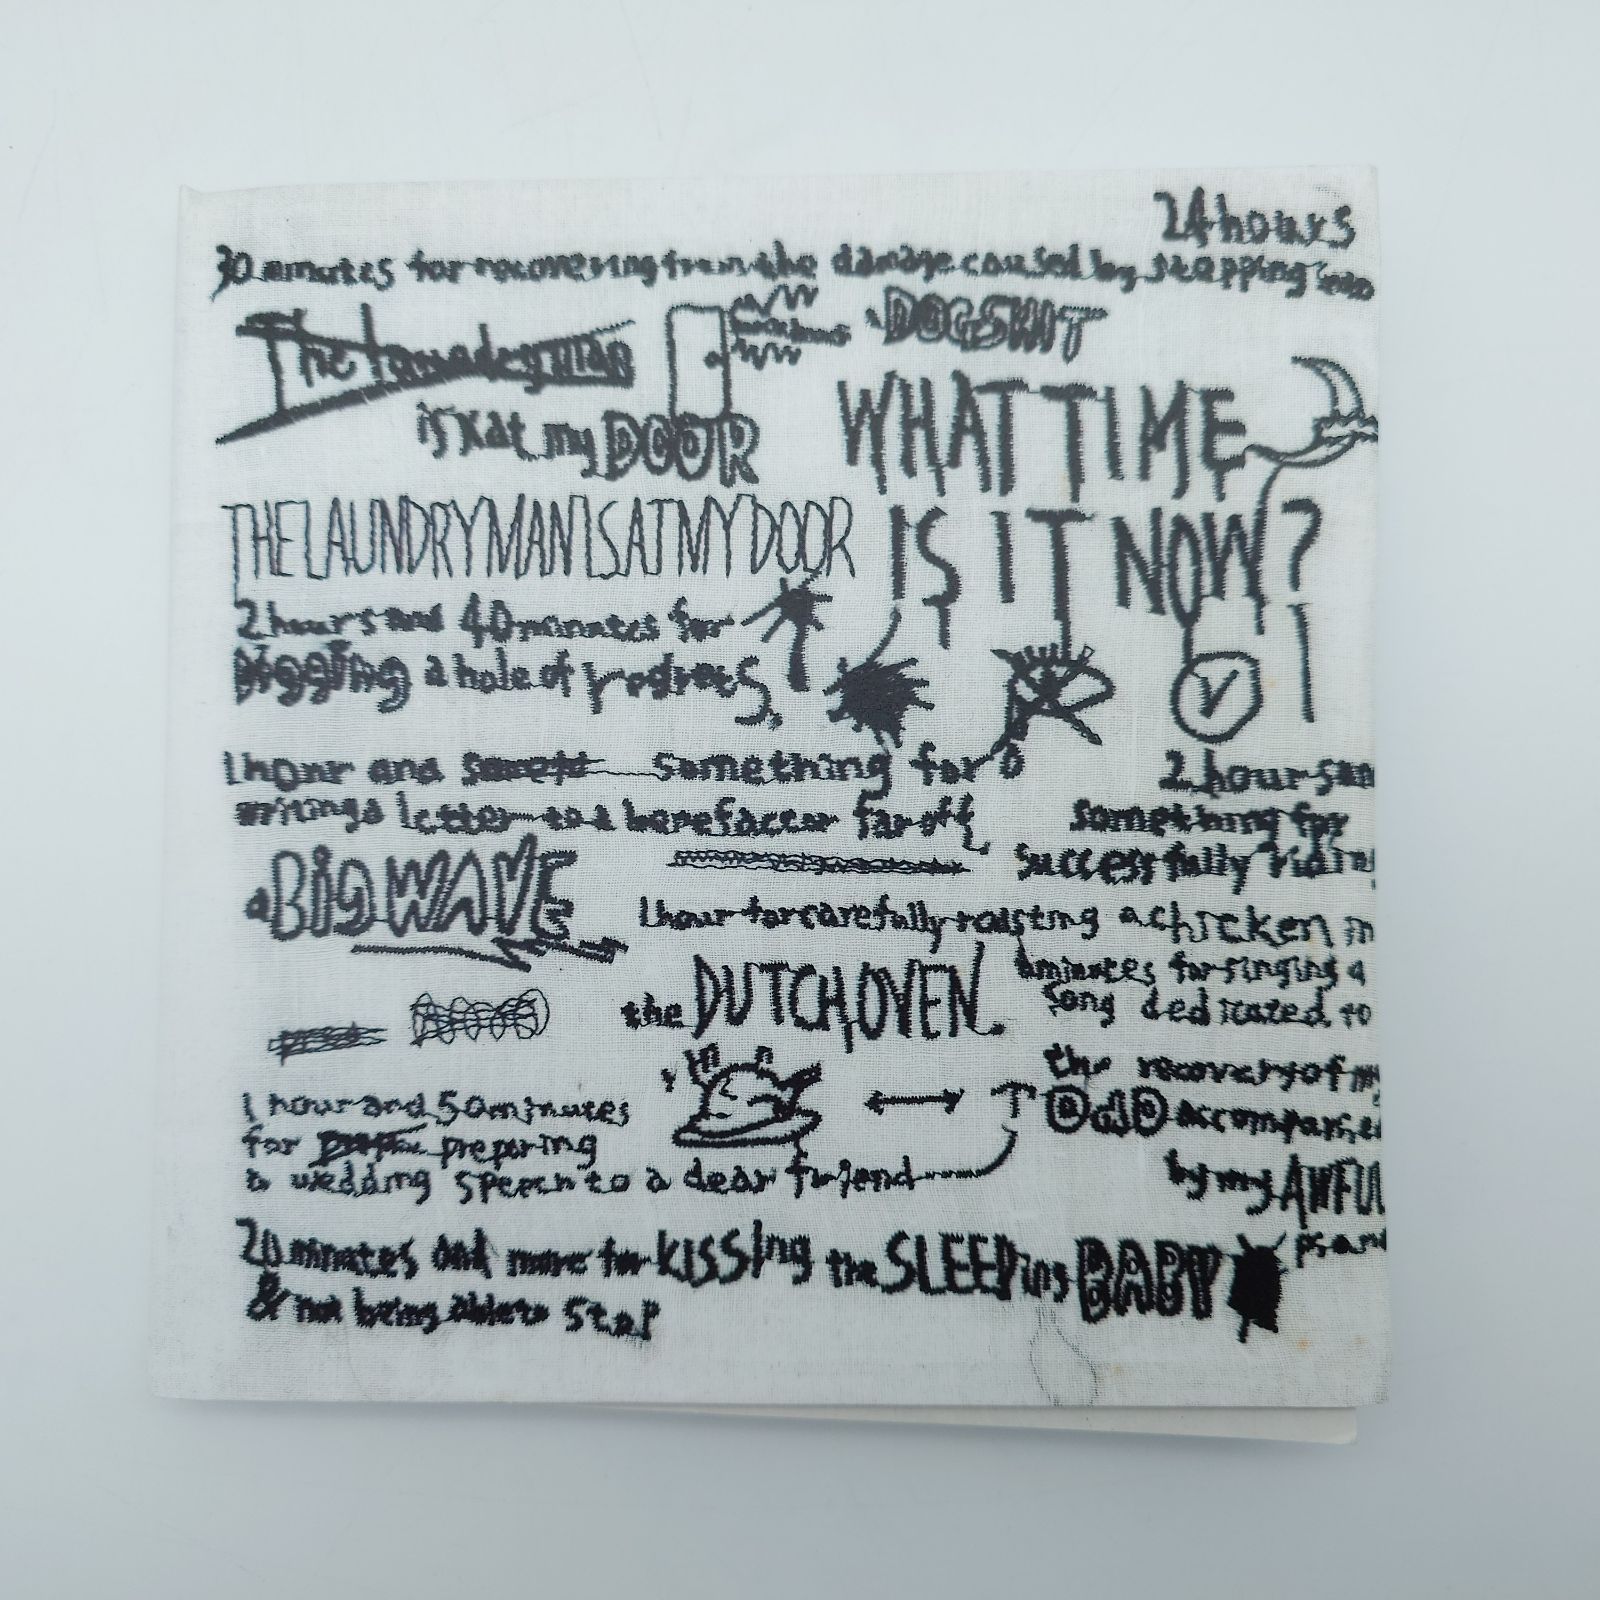 24 hours
30 minutes for recovering from the damage caused by stepping into
a DOGSHIT
The laundryman
is at my DOOR
WHAT TIME
IS IT NOW?
THE LAUNDRYMAN IS AT MY DOOR
2 hours and 40 minutes for
Digging a hole of regrets,
1 hour and something for
writing a letter to a benefactor far off
2 hours and
something for
successfully riding
a BIG WAVE
1 hour for carefully roasting a chicken in
the DUTCH OVEN.
minutes for singing a
song dedicated to
the recovery of my
DAD accompanied
by my AWFUL
1 hour and 50 minutes
for preparing
a wedding speech to a dear friend
20 minutes and more for KISSing the SLEEPing BABY
& not being able to stop